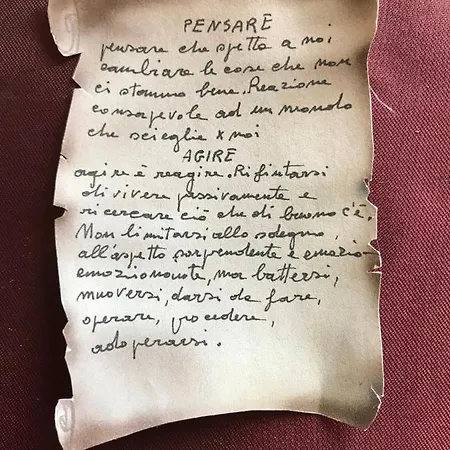 PENSARE
pensare che spetta a noi
cambiare le cose che non
ci stanno bene. Reazione
consapevole ad un mondo
che sceglie x noi
AGIRE
agire è reagire. Rifiutarsi
di vivere passivamente e
ricercare ciò che di buono c'è.
Non limitarsi allo sdegno,
all'aspetto sorprendente e emozio-
emozionante, ma battersi,
muoversi, darsi da fare,
operare, procedere,
adoperarsi.